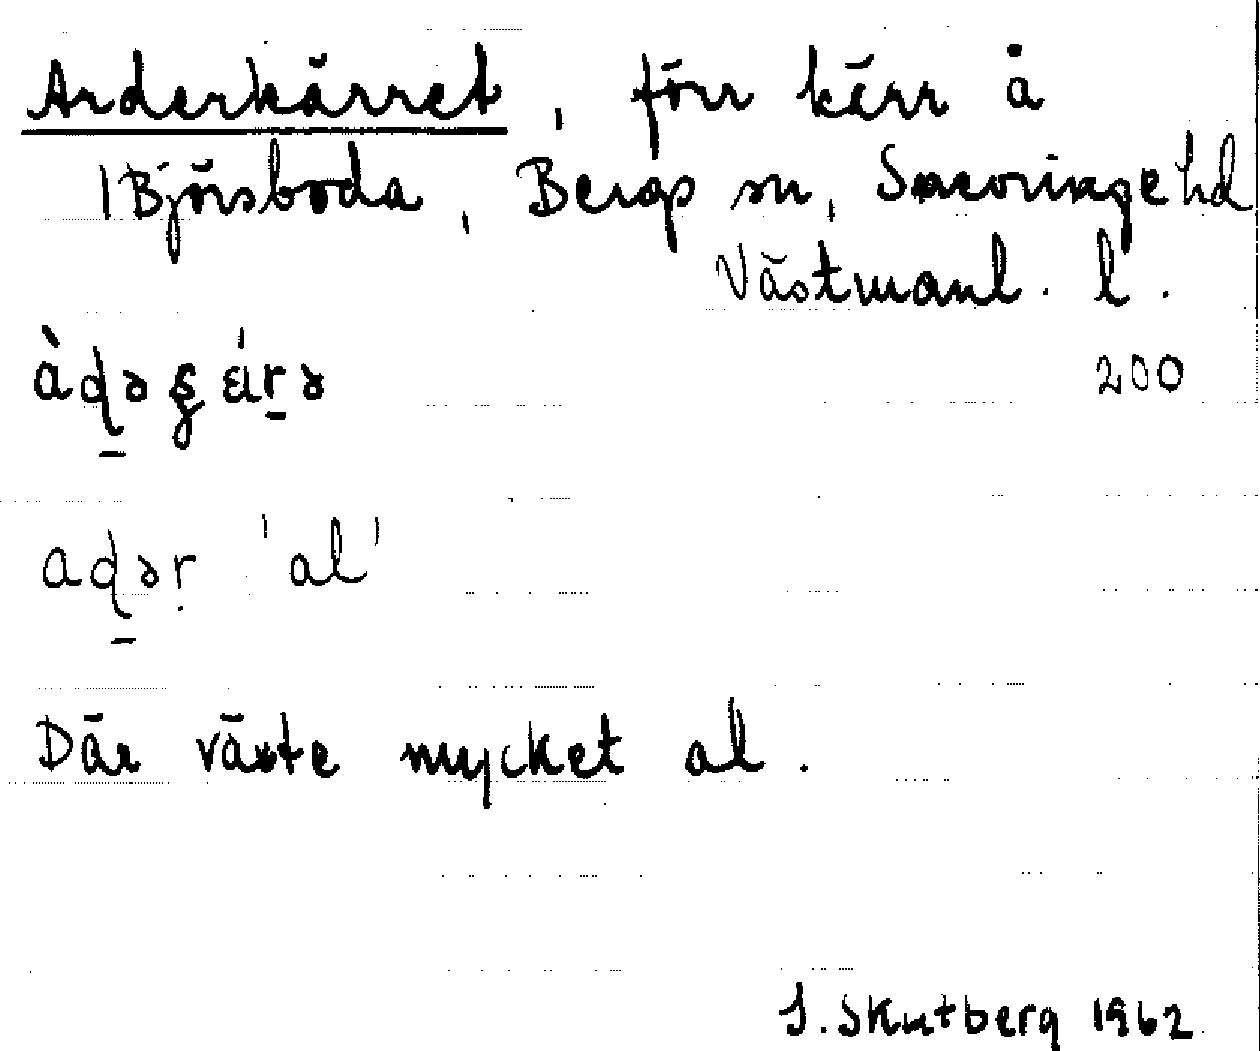 Arderkärret, förr kärr å
1Björsboda, Bergs sn, Snevringe hd
Västmanl. l.
200
àḏəgä́ṟə
aḏəṛ 'al'
Där växte mycket al.
S. Skutberg 1962